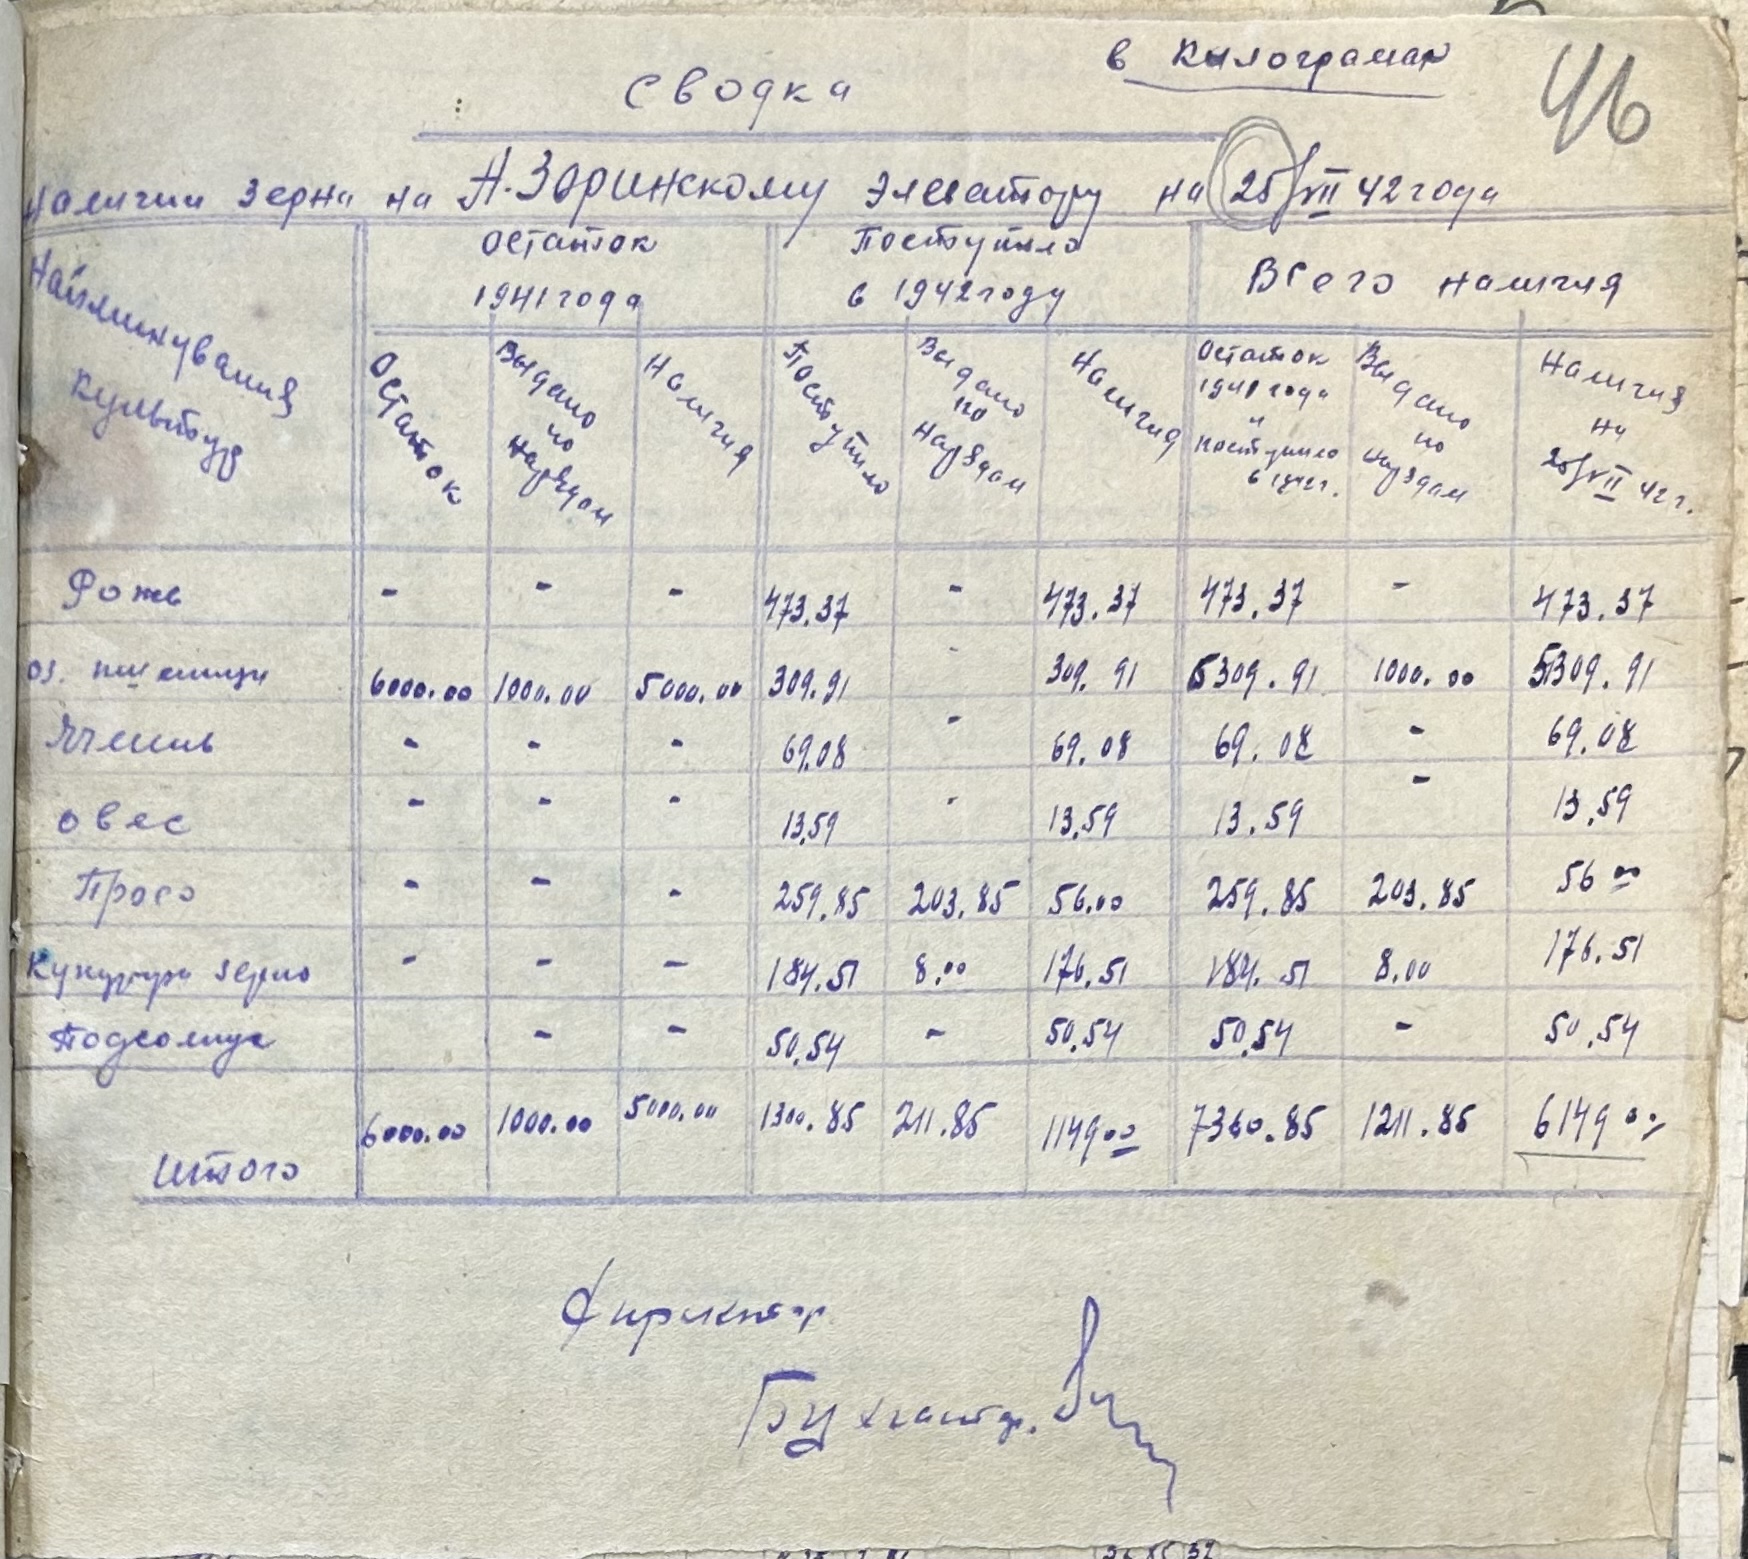 в килограмах
46
Сводка
Наличии зерна на А.Зоринскому элеватору на 25/VII 42 года
Найминувания культур
Остаток 1941 года
Поступило в 1942 году
Всего наличия
Остаток
Выдано по нарядам
Наличия
Поступило
Выдано по нарядам
Наличия
Остаток 1941 года и поступило в 1942 г.
Выдано по нарядам
Наличия на 25/VII 42 г.
Рожь - - - 473.37 - 473.37 473.37 - 473.37
оз. пшеници 6000.00 1000.00 5000.00 309.91 - 309.91 6309.91 1000.00 5309.91
Ячмень - - - 69.08 - 69.08 69.08 - 69.08
овес - - - 13.59 - 13.59 13.59 - 13.59
Просо - - - 259.85 203.85 56.00 259.85 203.85 56 00
Кукурузи зерно - - - 184.51 8.00 176.51 184.51 8.00 176.51
Подсолнух - - 50.54 - 50.54 50.54 - 50.54
Итого 6000.00 1000.00 5000.00 1300.85 211.85 1149 00 7360.85 1211.85 6149 00
Директор
Бухгалтер.